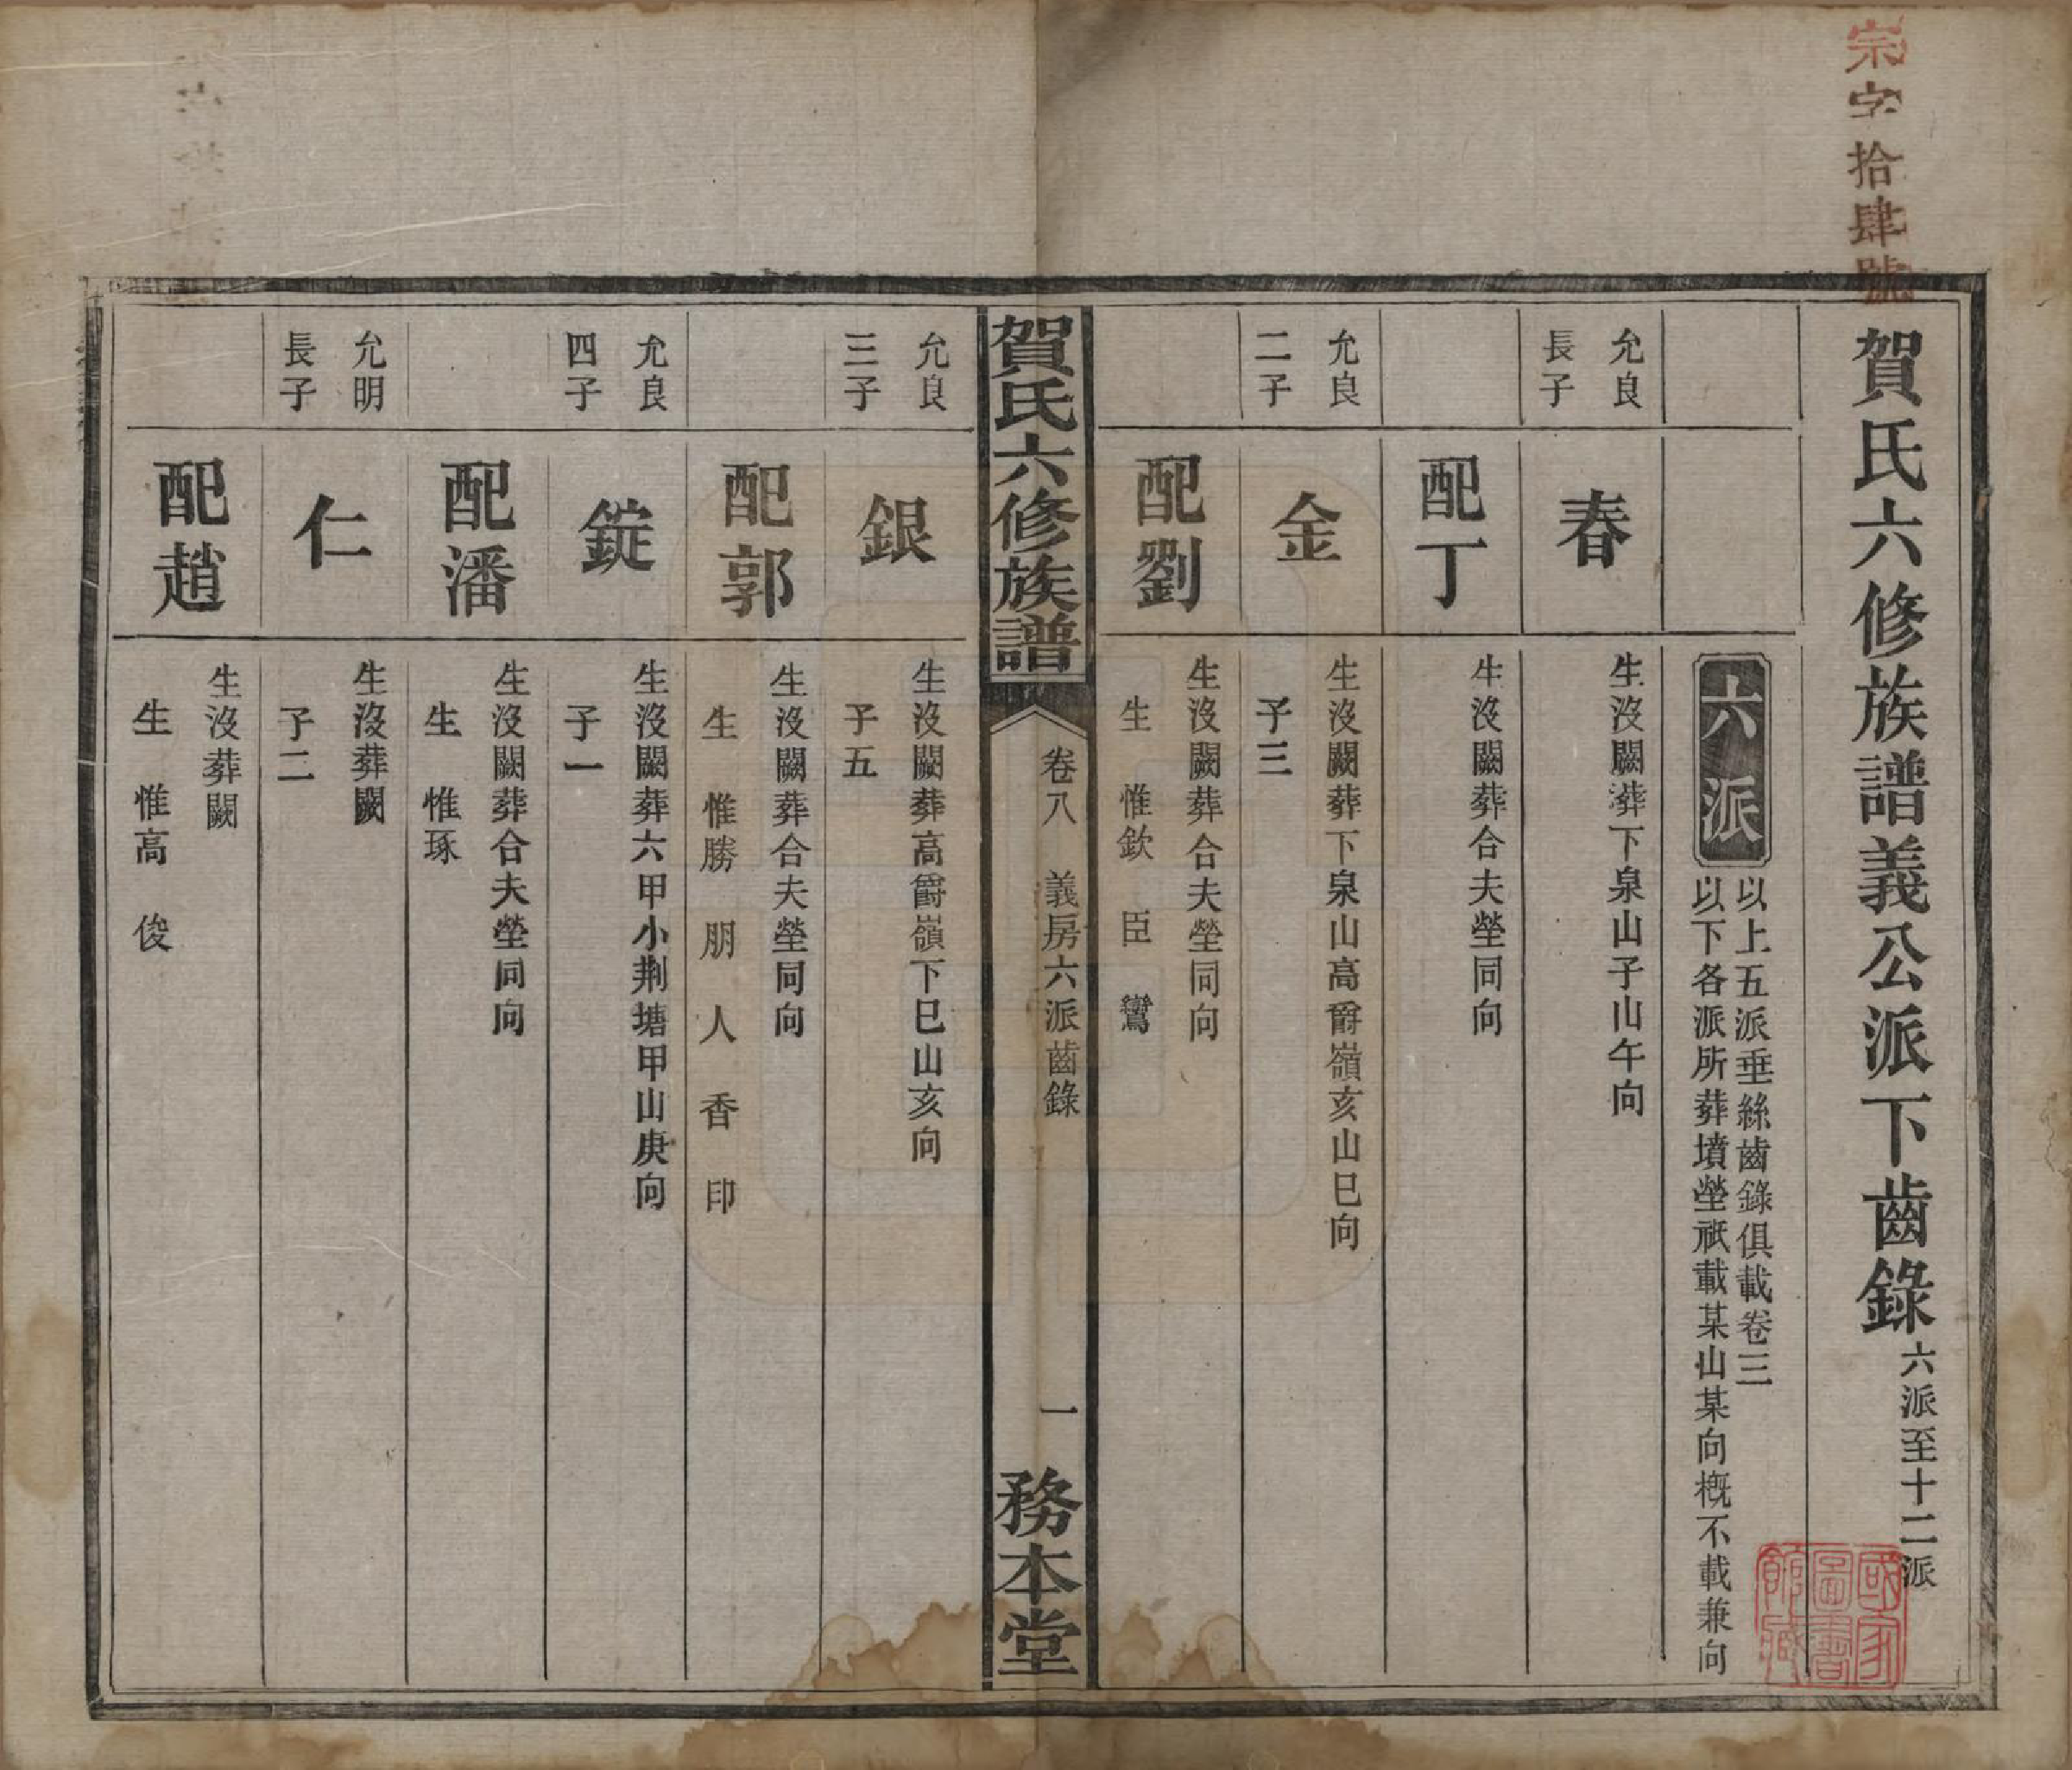 宗字拾肆號
賀氏六修族譜義公派下齒錄 六派至十二派
六派
以上五派垂絲齒錄俱載卷三
以下各派所葬墳塋祇載某山某向槪不載兼向
允良
長子
春
生沒闕葬下泉山子山午向
配丁
生沒闕葬合夫塋同向
允良
二子
金
生沒闕葬下泉山高爵嶺亥山巳向
子三
配劉
生沒闕葬合夫塋同向
生 惟欽 臣 鸞
賀氏六修族譜
卷八 義房六派齒錄
一
務本堂
允良
三子
銀
生沒闕葬高爵嶺下巳山亥向
子五
配郭
生沒闕葬合夫塋同向
生 惟勝 朋 人 香 印
允良
四子
錠
生沒闕葬六甲小荆塘甲山庚向
子一
配潘
生沒闕葬合夫塋同向
生 惟琢
允明
長子
仁
生沒葬闕
子二
配趙
生沒葬闕
生 惟高 俊
國家圖書館藏